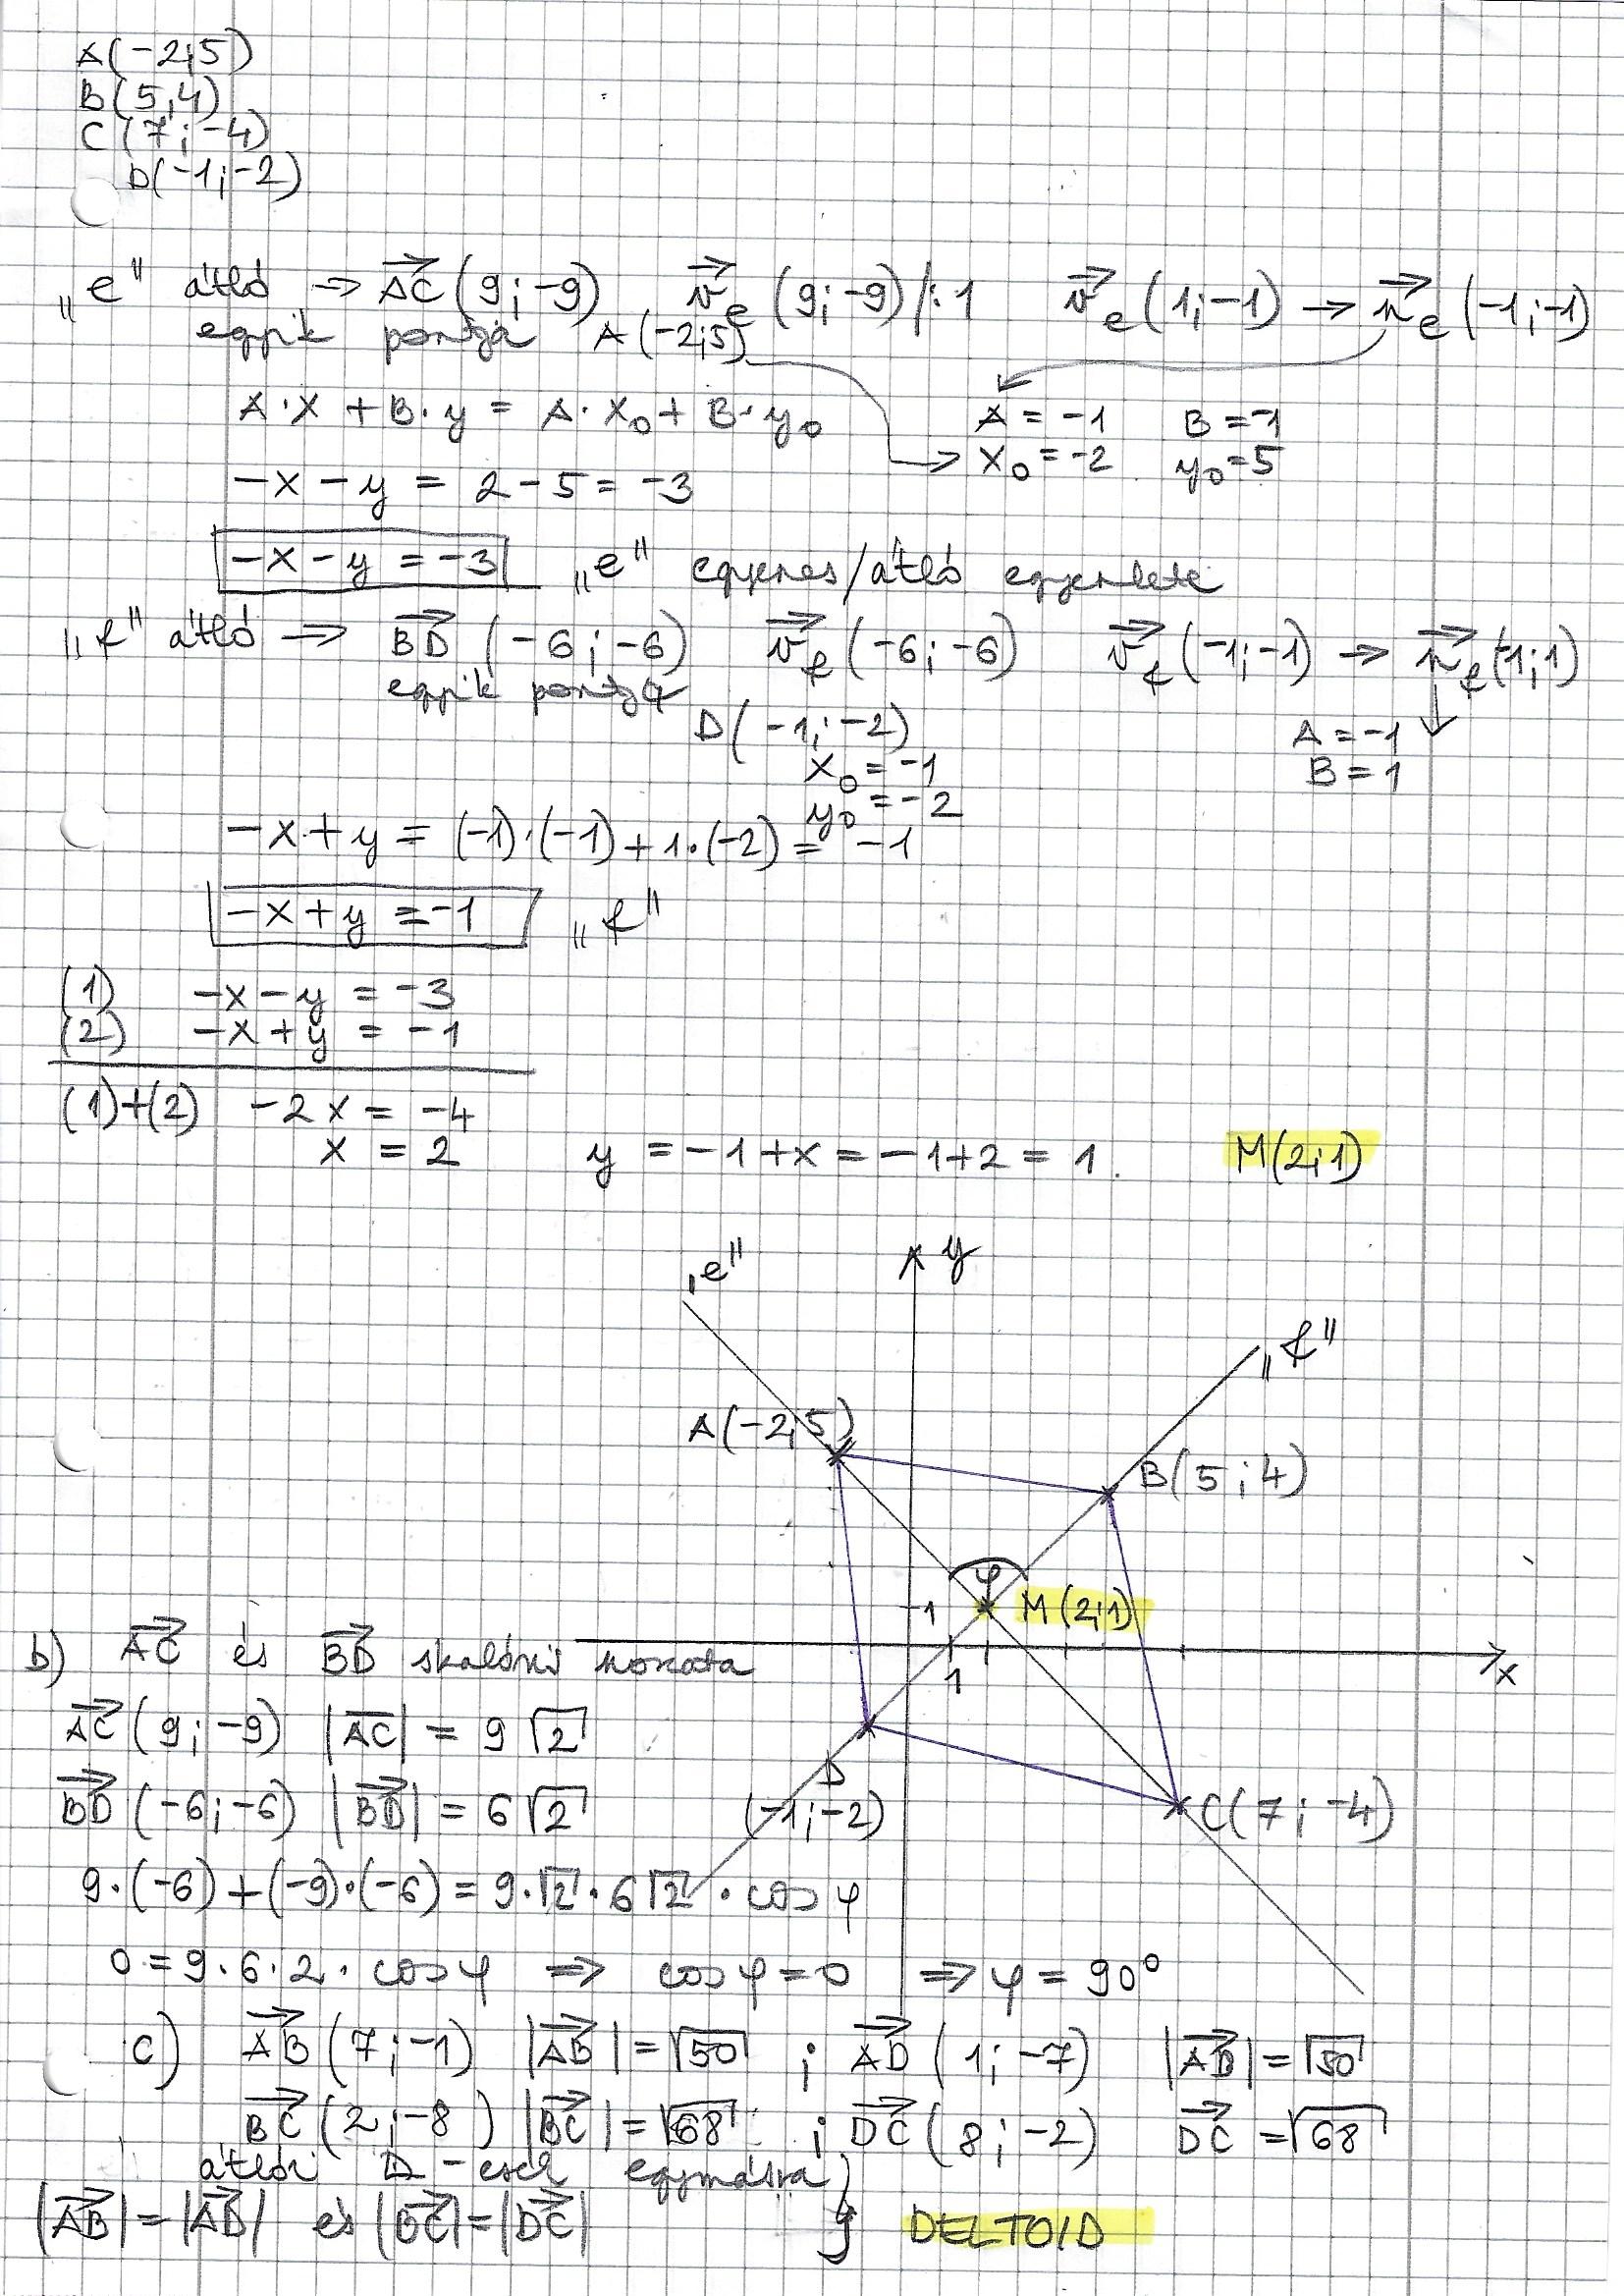 A(-2;5)
B(5;4)
C(7;-4)
D(-1;-2)
„e" átló → AC (9;-9) v_e (9;-9) /:1 v_e (1;-1) → n_e (-1;-1)
egyik pontja A(-2;5)
A·x + B·y = A·x₀ + B·y₀ A = -1 B = -1
x₀ = -2 y₀ = 5
-x - y = 2 - 5 = -3
-x - y = -3 „e" egyenes/átló egyenlete
„f" átló → BD (-6;-6) v_f (-6;-6) v_f (-1;-1) → n_f (-1;1)
egyik pontja
D(-1;-2) A = -1
x₀ = -1 B = 1
y₀ = -2
-x + y = (-1)·(-1) + 1·(-2) = -1
-x + y = -1 „f"
(1) -x - y = -3
(2) -x + y = -1
(1)+(2) -2x = -4
x = 2 y = -1 + x = -1 + 2 = 1. M(2;1)
„e" y
„f"
A(-2;5)
B(5;4)
φ
1 M(2;1)
1 x
D
(-1;-2)
C(7;-4)
b) AC és BD skaláris szorzata
AC (9;-9) |AC| = 9√2
BD (-6;-6) |BD| = 6√2
9·(-6) + (-9)·(-6) = 9·√2·6√2 · cos φ
0 = 9·6·2· cos φ ⇒ cos φ = 0 ⇒ φ = 90°
c) AB (7;-1) |AB| = √50 ; AD (1;-7) |AD| = √50
BC (2;-8) |BC| = √68 ; DC (8;-2) DC = √68
átlói ⊥-esek egymásra
|AB| = |AD| és |BC| = |DC| } DELTOID